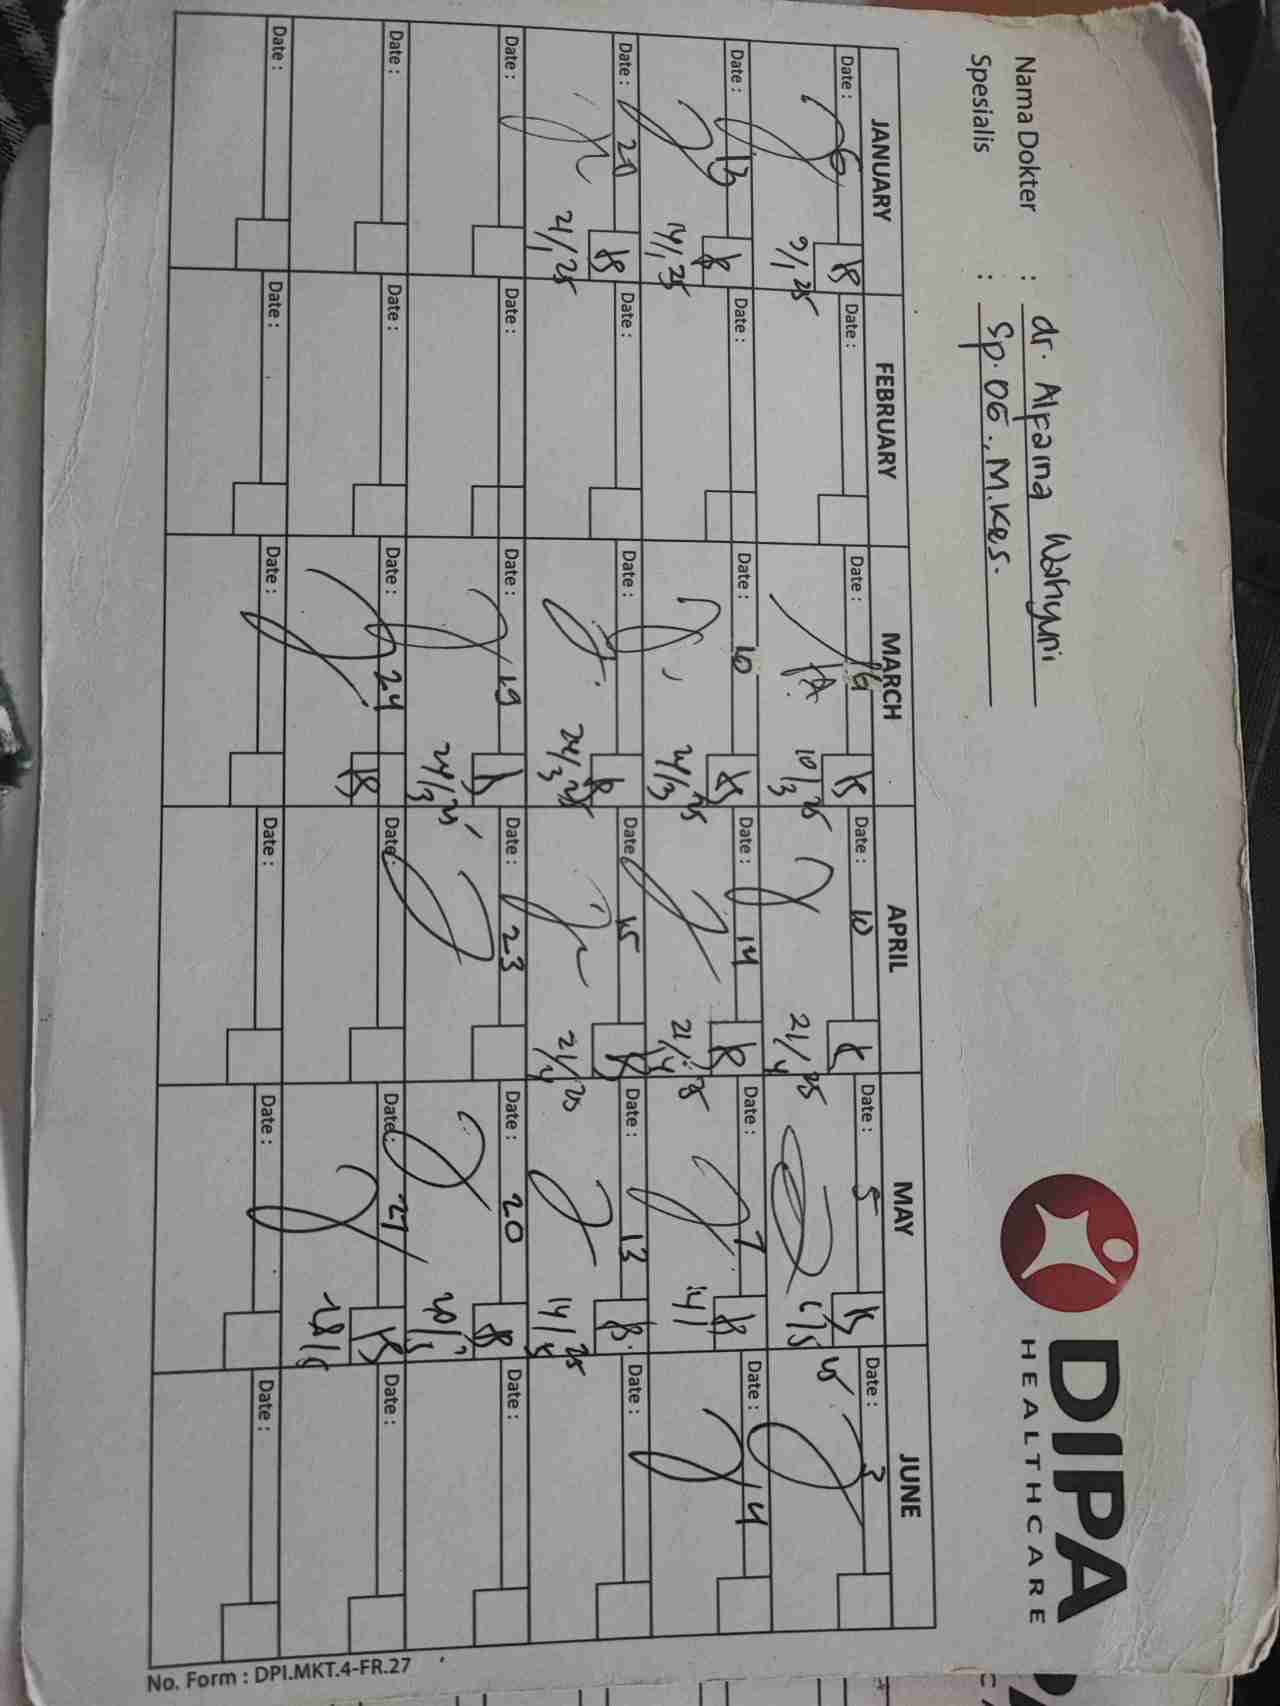 DIPA
HEALTHCARE
Nama Dokter : dr. Alfaina Wahyuni
Spesialis : Sp.OG., M.Kes.
JANUARY FEBRUARY MARCH APRIL MAY JUNE
Date : 6 Date : Date : 6 Date : 10 Date : 5 Date : 3
9/1 25 10/3 25 21/4 25 6/5 25
Date : 13 Date : Date : 10 Date : 14 Date : 7 Date : 4
14/1 25 24/3 25 21/4 25 14/
Date : 20 Date : Date : Date : 15 Date : 13 Date :
21/1 25 24/3 25 21/4 25 14/5 25
Date : Date : Date : 19 Date : 23 Date : 20 Date :
24/3 25 20/5
Date : Date : Date : 24 Date : Date : 27 Date :
28/5
Date : Date : Date : Date : Date : Date :
No. Form : DPI.MKT.4-FR.27